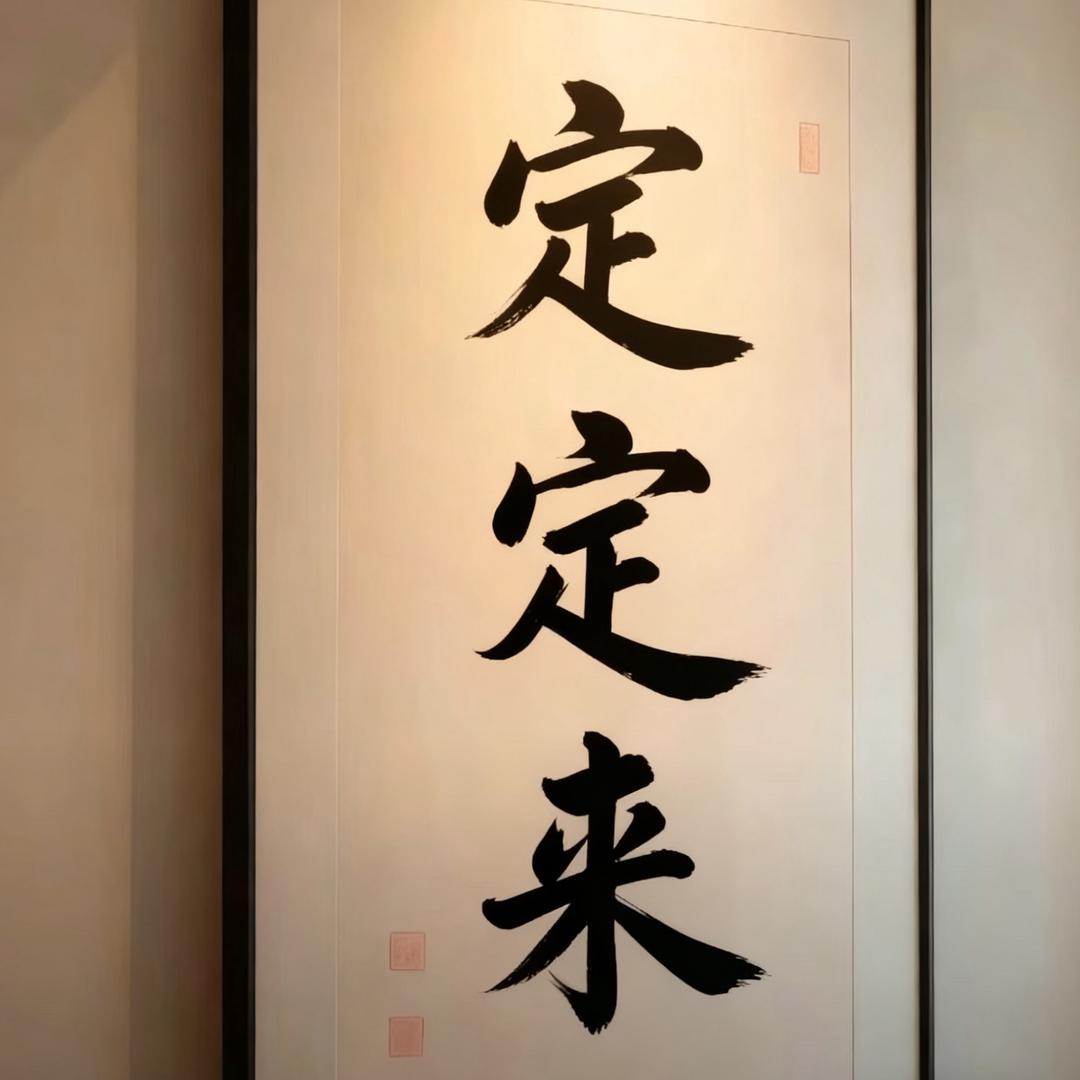 定定来